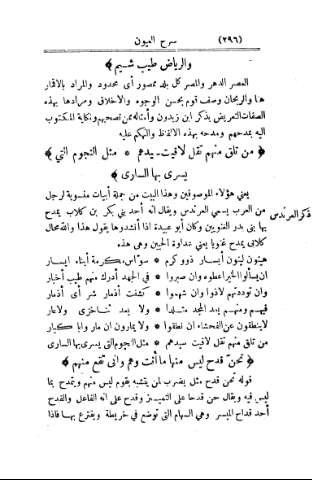 (٢٩٦) سرح العيون
والرياض طيب شميم ﴾
العصر الدهر والمصر كل بلد ممصور أى محدود والمراد بالاقمار
هنا والريحان وصف قوم بحسن الوجوه والاخلاق ومرادها بهذه
الصفات التعريض بذكر ابن زيدون وأمثاله ممن تصحبهم ونكاية المكتوب
اليه بمدحهم ومدحه بهذه الالفاظ والتهكم عليه
﴿ من تلق منهم تقل لاقيت سيدهم * مثل النجوم التي ﴾
يسرى بها السارى ﴾
يعني هؤلاء الموصوفين وهذا البيت من جملة أبيات منسوبة لرجل
من العرب يسمى العرندس ويقال انه أحد بني بكر بن كلاب يمدح
ذكر العرندس
بها بنى بدر الغنويين وكان أبو عبيدة اذا أنشدها يقول هذا والله محال
كلابى يمدح غنويا يعني عداوة الحيين وهى هذه
هينون لينون أيسار ذوو كرم * سوّاس مكرمة أبناء ايسار
ان يسألوا الخير أعطوه وان صبروا * في الجهد أدرك منهم طيب أخبار
وان توددتهم لانوا وان شهموا * كشفت أذمار شر أى أذمار
فيهم ومنهم يعد المجد متلدا * ولا يعد نثاخزى ولا عار
لا ينطقون عن الفحشاء ان نطقوا * ولا يمارون ان ماروا باكبار
من تلق منهم تقل لاقيت سيدهم * مثل النجوم التى يسرى بها السارى
﴿ نحن قدح ليس منها ما أنت وهم وانى تقع منهم ﴾
قوله نحن قدح مثل يضرب لمن يتشبه بقوم ليس منهم ويتمدح بما
ليس فيه ويقال حن قدحا على التمييز وقدح على انه الفاعل والقدح
أحد قداح الميسر وهى السهام التى توضع في خريطة ويقترع بها فاذا